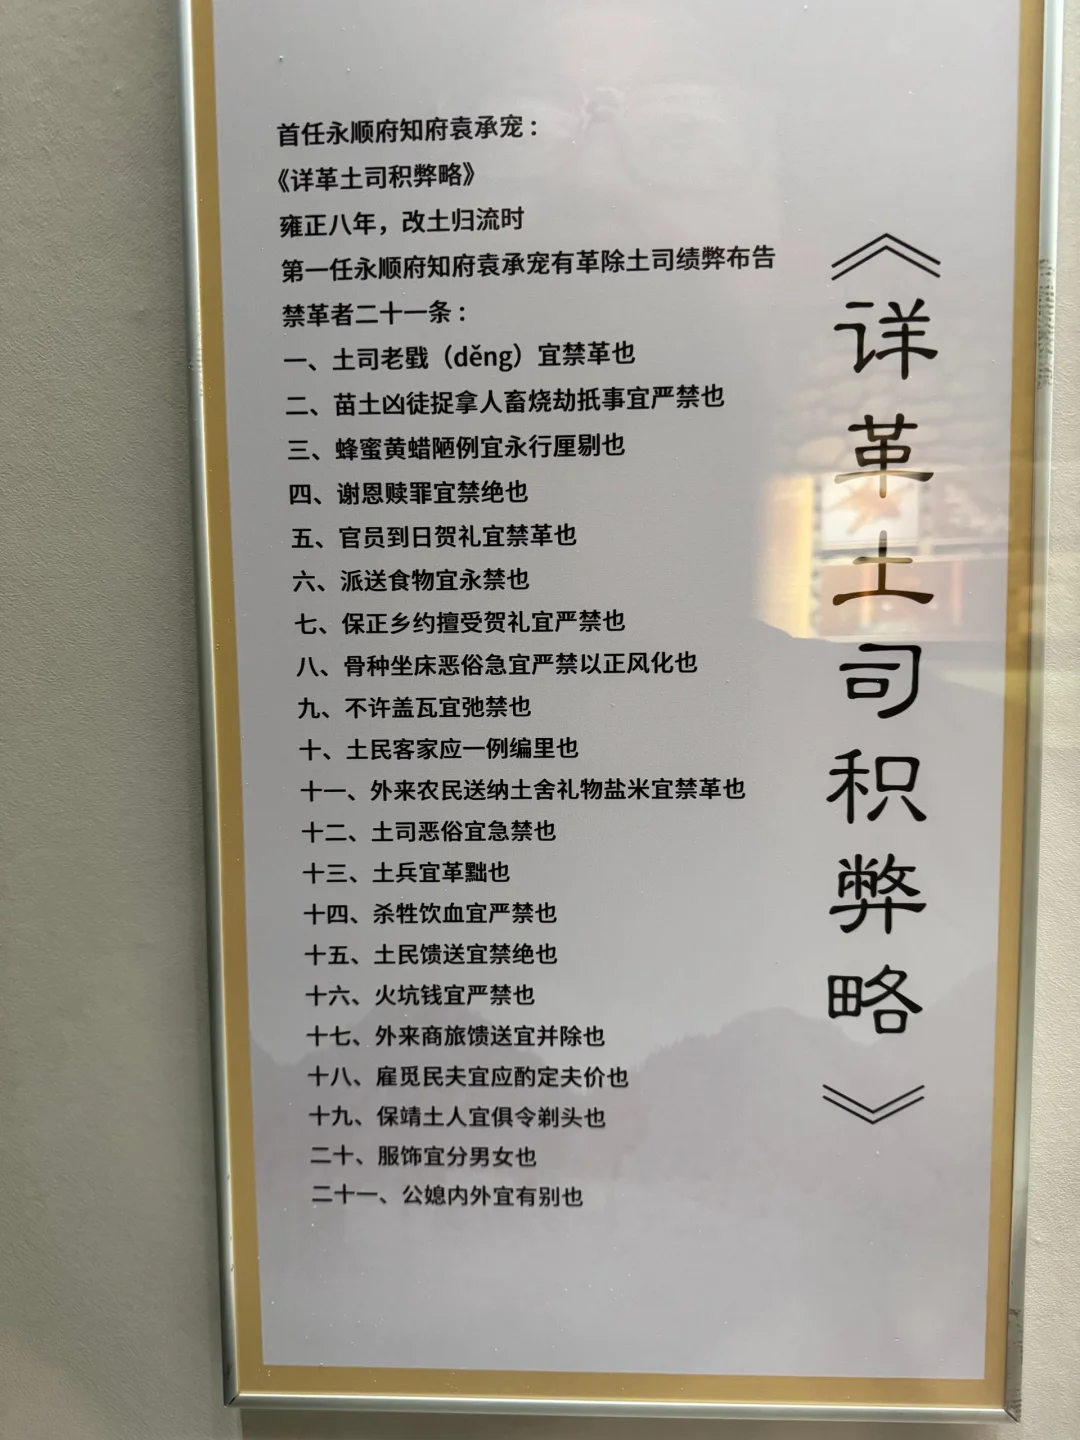 首任永顺府知府袁承宠：
《详革土司积弊略》
雍正八年，改土归流时
第一任永顺府知府袁承宠有革除土司绩弊布告
禁革者二十一条：
一、土司老戥（děng）宜禁革也
二、苗土凶徒捉拿人畜烧劫抵事宜严禁也
三、蜂蜜黄蜡陋例宜永行厘剔也
四、谢恩赎罪宜禁绝也
五、官员到日贺礼宜禁革也
六、派送食物宜永禁也
七、保正乡约擅受贺礼宜严禁也
八、骨种坐床恶俗急宜严禁以正风化也
九、不许盖瓦宜弛禁也
十、土民客家应一例编里也
十一、外来农民送纳土舍礼物盐米宜禁革也
十二、土司恶俗宜急禁也
十三、土兵宜革黜也
十四、杀牲饮血宜严禁也
十五、土民馈送宜禁绝也
十六、火坑钱宜严禁也
十七、外来商旅馈送宜并除也
十八、雇觅民夫宜应酌定夫价也
十九、保靖土人宜俱令剃头也
二十、服饰宜分男女也
二十一、公媳内外宜有别也
《详革土司积弊略》